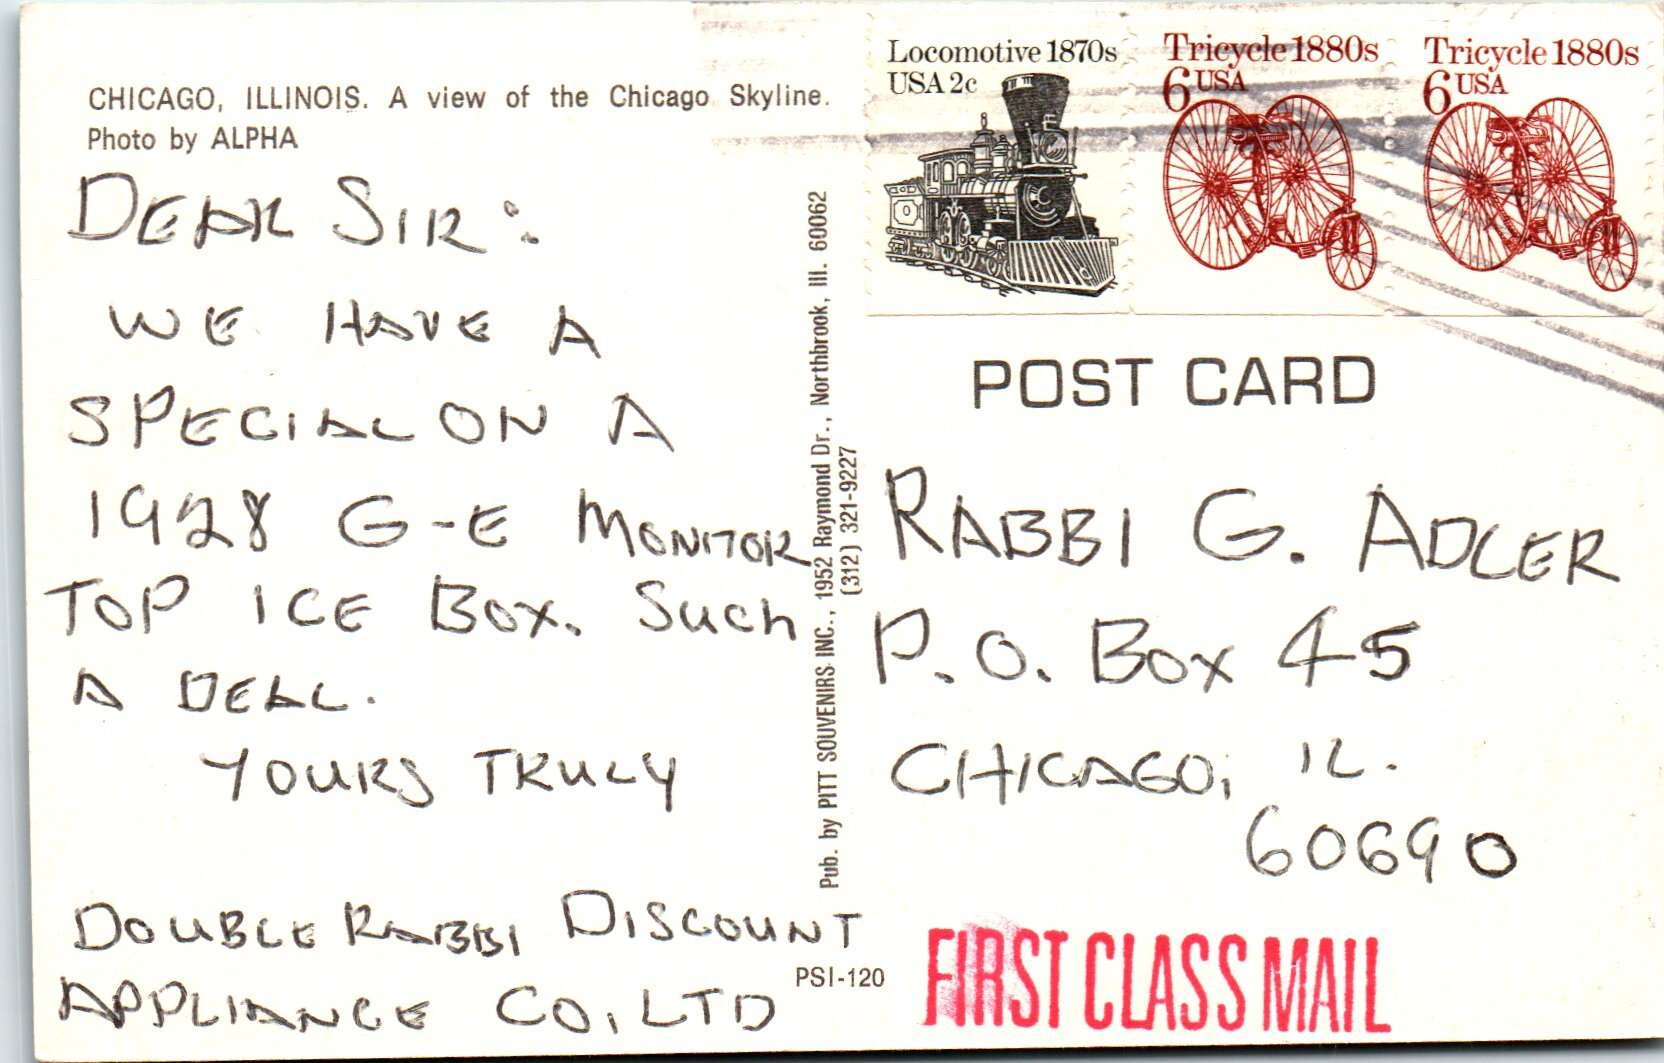 CHICAGO, ILLINOIS. A view of the Chicago Skyline.
Photo by ALPHA
DEAR SIR:
WE HAVE A
SPECIAL ON A
1928 G-E MONITOR
TOP ICE BOX. Such
A DEAL.
YOURS TRULY
DOUBLE RABBI DISCOUNT
APPLIANCE CO, LTD
Pub. by PITT SOUVENIRS INC., 1952 Raymond Dr., Northbrook, Ill. 60062
(312) 321-9227
PSI-120
Locomotive 1870s
USA 2c
Tricycle 1880s
6 USA
Tricycle 1880s
6 USA
POST CARD
RABBI G. ADLER
P.O. Box 45
CHICAGO, IL.
60690
FIRST CLASS MAIL